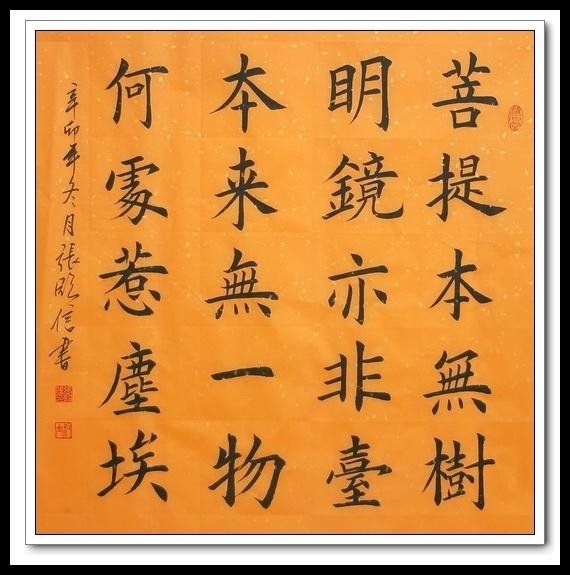 菩提本無樹
明鏡亦非臺
本来無一物
何處惹塵埃
辛卯年冬月張信書